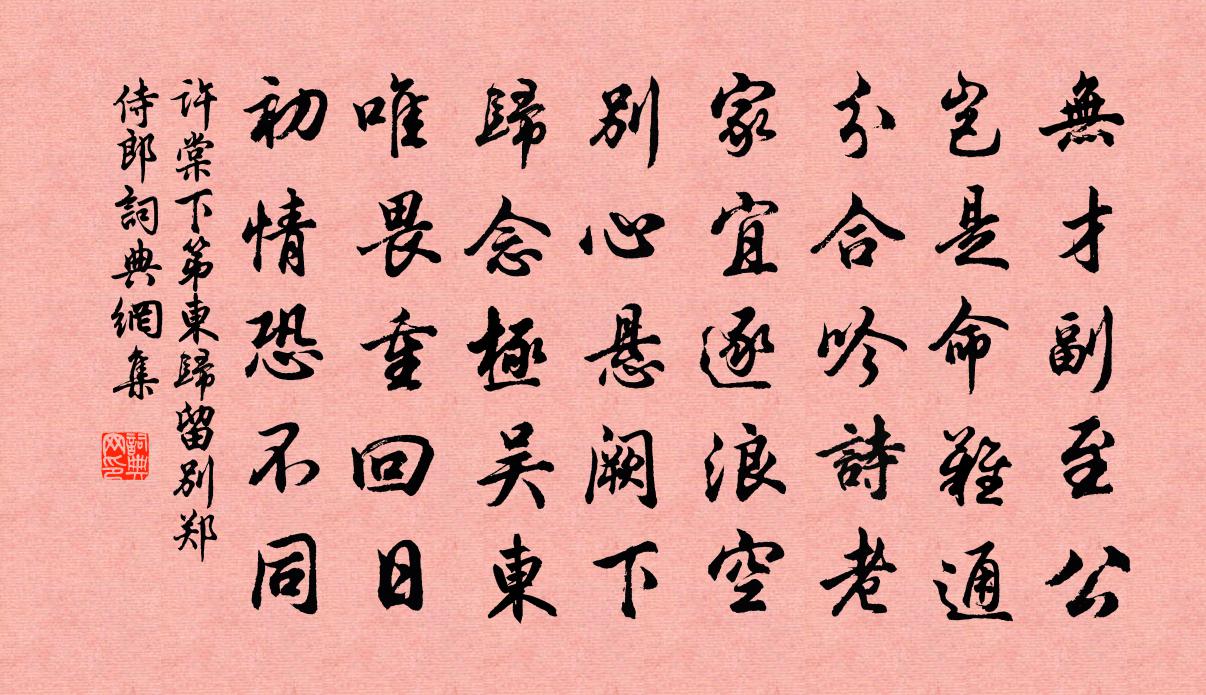 無才副至公
豈是命難通
分合吟詩老
家宜逐浪空
別心懸闕下
歸念極吴東
唯畏重回日
初情恐不同
許棠下第東歸留別郑
侍郎詞典網集
詞典
网印